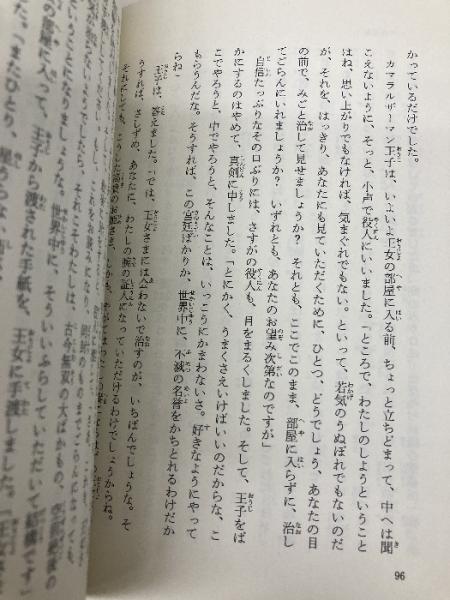 かっているだけでした。
カマラルザーマン王子は、いよいよ王女の部屋に入る前、ちょっと立ちどまって、中へは聞
こえないように、そっと、小声で役人にいいました。「ところで、わたしのしようということ
はね、思い上がりでもなければ、気まぐれでもない。といって、若気のうぬぼれでもないのだ
が、それを、はっきり、あなたにも見ていただくために、ひとつ、どうでしょう、あなたの目
の前で、みごと治して見せましょうか？ それとも、ここでこのまま、部屋に入らずに、治し
てごらんにいれましょうか？ いずれとも、あなたのお望み次第なのですが」
自信たっぷりなその口ぶりには、さすがの役人も、目をまるくしました。そして、王子をば
かにするのはやめて、真剣に申しました。「とにかく、うまくさえいけばいいのだからな、こ
こでやろうと、中でやろうと、そんなことは、いっこうにかまわないさ。好きなようにやって
もらうんだな。そうすれば、この宮廷ばかりか、世界中に、不滅の名誉をかちとれるわけだか
らね」
王子は、答えました。「では、王女さまには会わないで治すのが、いちばんでしょうな。そ
うすれば、さしずめ、あなたに、わたしの腕の証人になっていただけるわけでしょうからね。
それにしても、こうした高貴のお姫さま、しかも、
世界中に、そういいふらして
古今無双の大ばかもの、
の部屋に入って、王子から渡された手紙を、王女に手渡しました。「王